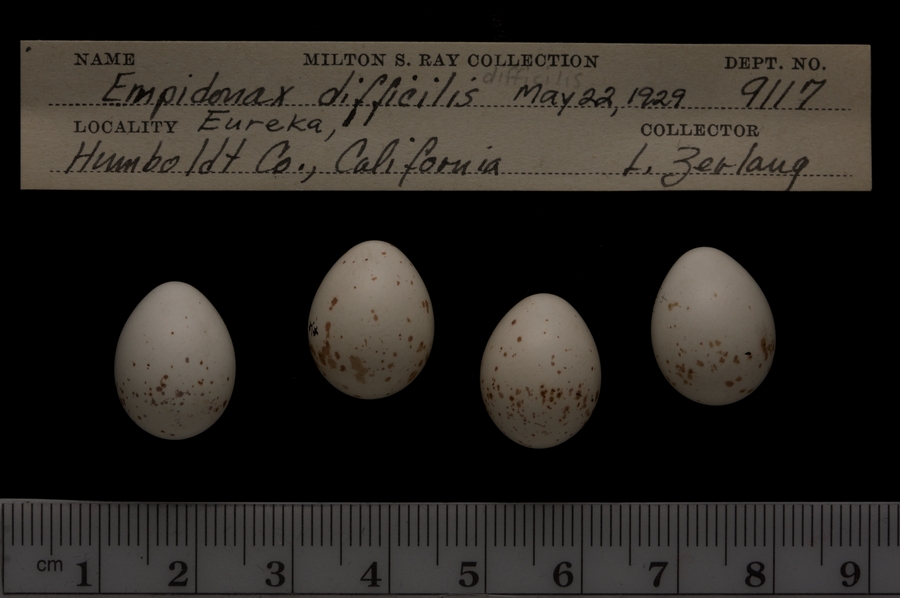 NAME MILTON S. RAY COLLECTION DEPT. NO.
difficilis
Empidonax difficilis May 22, 1929 9117
LOCALITY Eureka, COLLECTOR
Humboldt Co., California L. Zerlang
cm 1 2 3 4 5 6 7 8 9